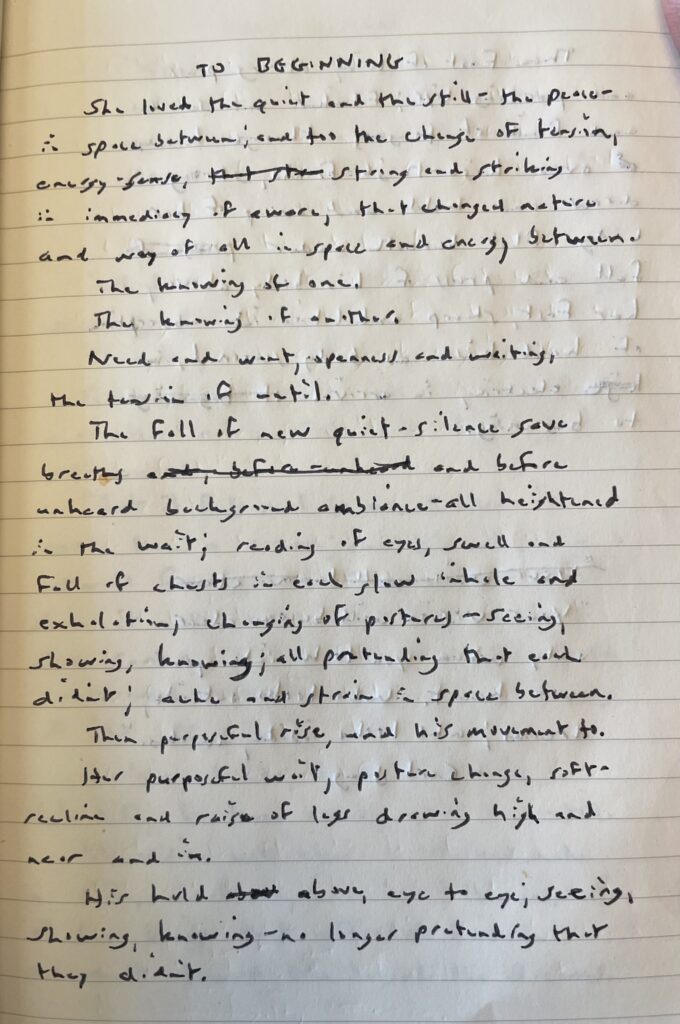 TO BEGINNING
She loved the quiet and the still - the peace -
in space between; and too the change of tension,
energy-sense, that str strong and striking
in immediacy of aware, that changed nature
and way of all in space and energy between.
The knowing of one.
The knowing of another.
Need and want, openness and waiting,
the tension of until.
The fall of new quiet - silence save
breaths and, before-unheard and before
unheard background ambiance - all heightened
in the wait; reading of eyes, swell and
fall of chests in each slow inhale and
exhalation; changing of postures - seeing,
showing, knowing; all pretending that each
didn't; ache and strain in space between.
Then purposeful rise, and his movement to.
Her purposeful wait, posture change, soft-
recline and raise of legs drawing high and
near and in.
His hold above, eye to eye; seeing,
showing, knowing - no longer pretending that
they didn't.